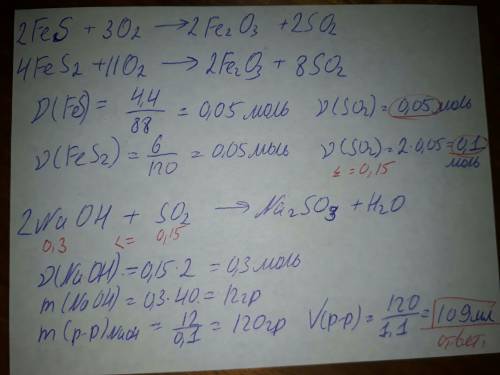 2FeS + 3O₂ → 2Fe₂O₃ + 2SO₂
4FeS₂ + 11O₂ → 2Fe₂O₃ + 8SO₂
ν(FeS) = 4,4/88 = 0,05 моль ν(SO₂) = 0,05 моль
ν(FeS₂) = 6/120 = 0,05 моль ν(SO₂) = 2·0,05 = 0,1 моль
Σ = 0,15
2NaOH + SO₂ → Na₂SO₃ + H₂O
0,3 <= 0,15
ν(NaOH) = 0,15·2 = 0,3 моль
m(NaOH) = 0,3·40 = 12гр
m(р-р)NaOH = 12/0,1 = 120гр V(р-р) = 120/1,1 = 109мл
ответ.